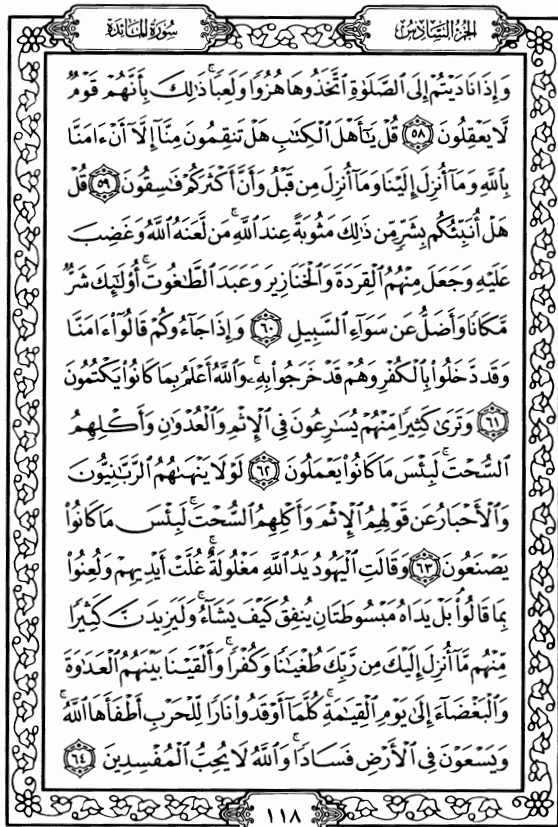 سُورَةُ المَائدَة
الجُزءُ السَّادِسُ
وَإِذَا نَادَيْتُمْ إِلَى ٱلصَّلَوٰةِ ٱتَّخَذُوهَا هُزُوًا وَلَعِبًا ۚ ذَٰلِكَ بِأَنَّهُمْ قَوْمٌ
لَّا يَعْقِلُونَ ٥٨ قُلْ يَـٰٓأَهْلَ ٱلْكِتَـٰبِ هَلْ تَنقِمُونَ مِنَّآ إِلَّآ أَنْ ءَامَنَّا
بِٱللَّهِ وَمَآ أُنزِلَ إِلَيْنَا وَمَآ أُنزِلَ مِن قَبْلُ وَأَنَّ أَكْثَرَكُمْ فَـٰسِقُونَ ٥٩ قُلْ
هَلْ أُنَبِّئُكُم بِشَرٍّ مِّن ذَٰلِكَ مَثُوبَةً عِندَ ٱللَّهِ ۚ مَن لَّعَنَهُ ٱللَّهُ وَغَضِبَ
عَلَيْهِ وَجَعَلَ مِنْهُمُ ٱلْقِرَدَةَ وَٱلْخَنَازِيرَ وَعَبَدَ ٱلطَّـٰغُوتَ ۚ أُو۟لَـٰٓئِكَ شَرٌّ
مَّكَانًا وَأَضَلُّ عَن سَوَآءِ ٱلسَّبِيلِ ٦٠ وَإِذَا جَآءُوكُمْ قَالُوٓا۟ ءَامَنَّا
وَقَد دَّخَلُوا۟ بِٱلْكُفْرِ وَهُمْ قَدْ خَرَجُوا۟ بِهِۦ ۚ وَٱللَّهُ أَعْلَمُ بِمَا كَانُوا۟ يَكْتُمُونَ
٦١ وَتَرَىٰ كَثِيرًا مِّنْهُمْ يُسَـٰرِعُونَ فِى ٱلْإِثْمِ وَٱلْعُدْوَٰنِ وَأَكْلِهِمُ
ٱلسُّحْتَ ۚ لَبِئْسَ مَا كَانُوا۟ يَعْمَلُونَ ٦٢ لَوْلَا يَنْهَىٰهُمُ ٱلرَّبَّـٰنِيُّونَ
وَٱلْأَحْبَارُ عَن قَوْلِهِمُ ٱلْإِثْمَ وَأَكْلِهِمُ ٱلسُّحْتَ ۚ لَبِئْسَ مَا كَانُوا۟
يَصْنَعُونَ ٦٣ وَقَالَتِ ٱلْيَهُودُ يَدُ ٱللَّهِ مَغْلُولَةٌ ۚ غُلَّتْ أَيْدِيهِمْ وَلُعِنُوا۟
بِمَا قَالُوا۟ ۘ بَلْ يَدَاهُ مَبْسُوطَتَانِ يُنفِقُ كَيْفَ يَشَآءُ ۚ وَلَيَزِيدَنَّ كَثِيرًا
مِّنْهُم مَّآ أُنزِلَ إِلَيْكَ مِن رَّبِّكَ طُغْيَـٰنًا وَكُفْرًا ۚ وَأَلْقَيْنَا بَيْنَهُمُ ٱلْعَدَٰوَةَ
وَٱلْبَغْضَآءَ إِلَىٰ يَوْمِ ٱلْقِيَـٰمَةِ ۚ كُلَّمَآ أَوْقَدُوا۟ نَارًا لِّلْحَرْبِ أَطْفَأَهَا ٱللَّهُ ۚ
وَيَسْعَوْنَ فِى ٱلْأَرْضِ فَسَادًا ۚ وَٱللَّهُ لَا يُحِبُّ ٱلْمُفْسِدِينَ ٦٤
١١٨